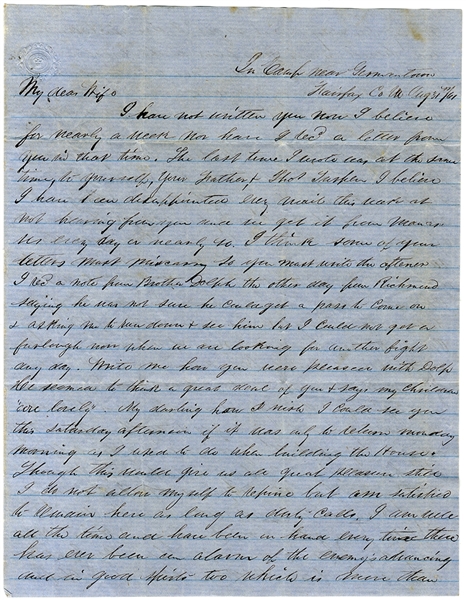 In Camp near Germantown
Fairfax Co Va Aug 31st/61
My dear Wife
I have not written you now I believe
for nearly a week nor have I rec'd a letter from
you in that time. The last time I wrote was at the same
time, to yourself, your Father, & Thos I believe
I have been disappointed every mail this week at
not hearing from you and we get it from Manas
sas every day or nearly so. I think some of your
letters must miscarry so you must write the oftener
I rec'd a note from Brother Dolph the other day from Richmond
saying he was not sure he could get a pass to come on
& asking me to run down & see him but I could not get a
furlough now when we are looking for another fight
any day. Write me how you were pleased with Dolph
He seemed to think a great deal of you & says my children
"are lovely". My darling how I wish I could see you
this Saturday afternoon if it was only to return monday
morning as I used to do when building the House.
Though this would give us all great pleasure still
I do not allow myself to repine but am satisfied
to remain here as long as duty calls. I am well
all the time and have been on hand every time there
has ever been an alarm of the enemy's advancing
and in good spirits too which is more than